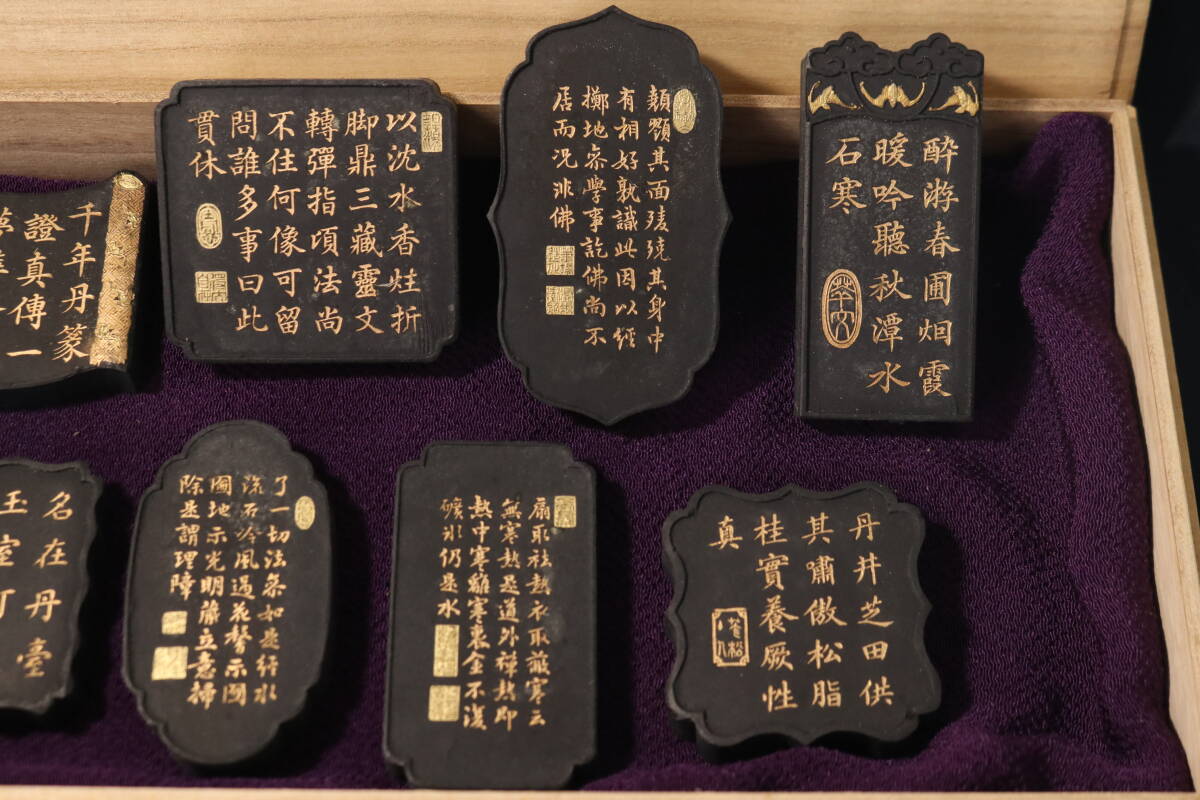 千年丹篆
證真傳一
以沈水香炷折
脚鼎三藏靈文
轉彈指項法尚
不住何像可留
問誰多事曰此
貫休
其面
其身中
有相好孰識此因以經
擲地叅學事訖佛尚不
居而况非佛
酔游春圃烟霞
暖吟聽秋潭水
石寒
名在丹臺
玉室
了一切法叅如是行水
流石冷風過花
國地示光明藤立意
除是謂理障
扇取祛熱衣取禦寒云
無寒熱是道外禪熱即
熱中寒離寒裹金不復
礦氷仍是水
丹井芝田供
其嘯傲松脂
桂實養厥性
真